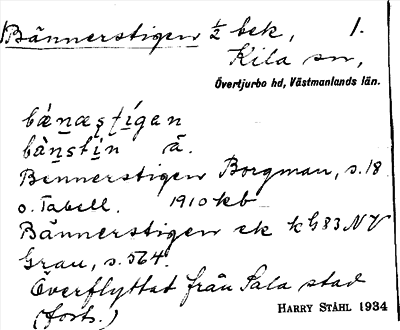 Bännerstigen ½ bek, 1.
Kila sn,
Övertjurbo hd, Västmanlands län.
bànæʂʈígan
bànstin ä.
Bennerstigen Borgman, s. 18
o. Tabell. 1910 kb
Bännerstigen ek kG83 NV
Grau, s. 564.
Överflyttat från Sala stad
(forts.)
HARRY STÅHL 1934